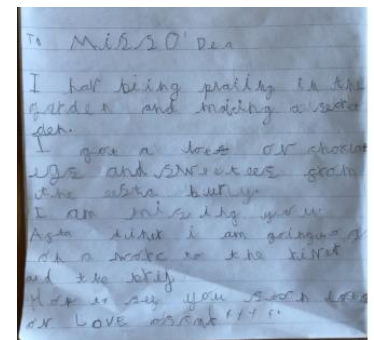 To Miss O'Dea
I hav being plaiing in the
garden and making a secra
den.
I got a lots ov choclat
egs and sweetees from
the esta buny.
I am missing you.
Afta i am going
on a wolc to the
and the
Hop to see you soon lots
ov Love